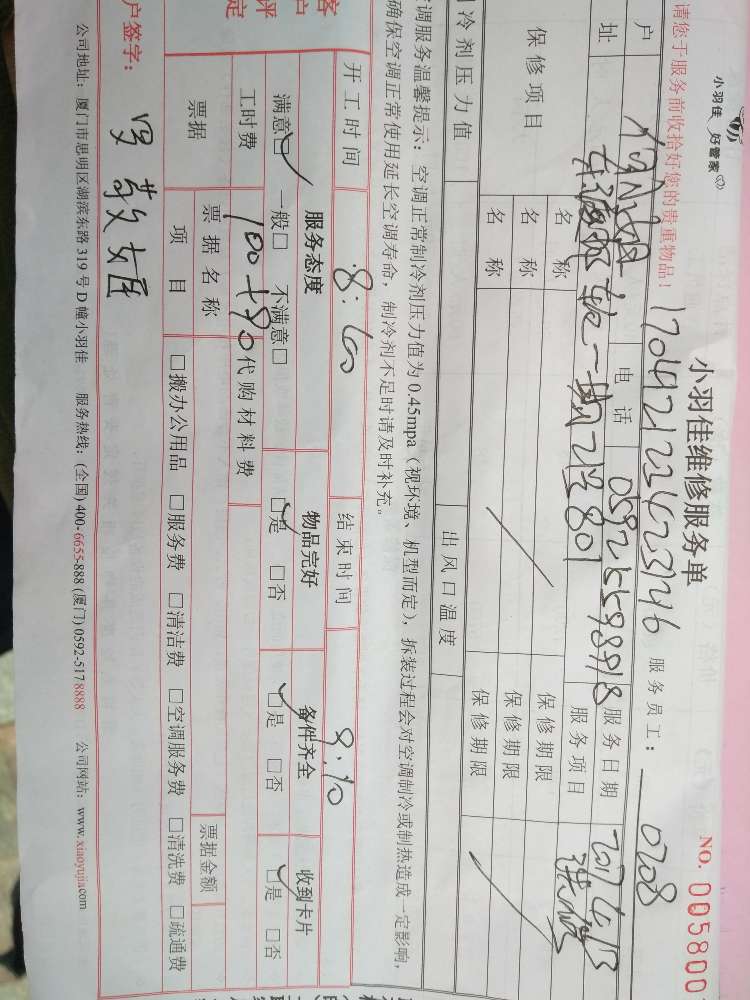 小羽佳 好管家
小羽佳维修服务单
NO. 005800
请您于服务前收拾好您的贵重物品！
服务员工： 0708
户
电 话 0592 5598918
服务日期 2017 4 13
址
801
服务项目
保修项目
名 称
保修期限
名 称
保修期限
名 称
保修期限
冷剂压力值
出风口温度
调服务温馨提示： 空调正常制冷剂压力值为 0.45mpa（视环境、机型而定），拆装过程会对空调制冷或制热造成一定影响，
确保空调正常使用延长空调寿命，制冷剂不足时请及时补充。
开工时间
8:00
结束时间
客
户
评
定
服务态度
物品完好
备件齐全
收到卡片
满意□ 一般□ 不满意□
□是 □否
□是 □否
□是 □否
工时费
100+480
代购材料费
票据
票据名称
票据金额
项 目
□搬办公用品 □服务费 □清洁费 □空调服务费 □清洗费 □疏通费
户签字：
公司地址：厦门市思明区湖滨东路 319 号 D 幢小羽佳 服务热线：(全国) 400-6655-888 (厦门) 0592-517 8888 公司网站：www.xiaoyujia.com